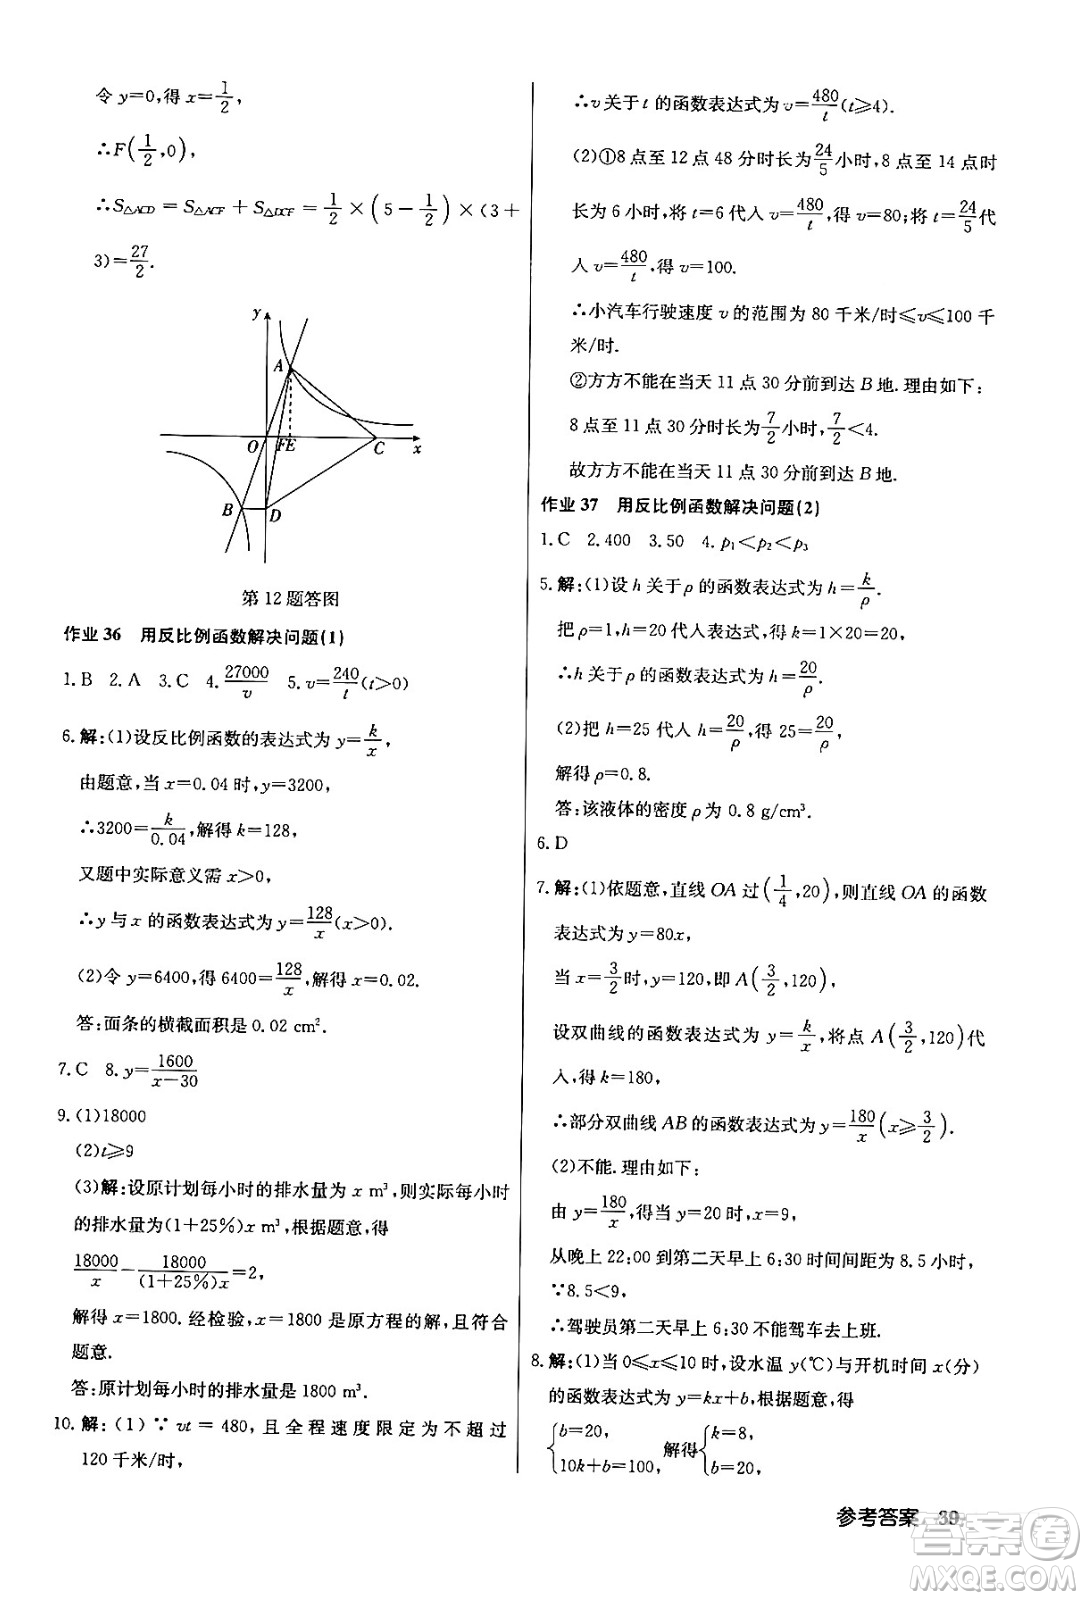 令 y=0,得 x=1/2,
∴F(1/2,0),
∴S△ACD = S△ACF + S△DCF = 1/2 × (5 − 1/2) × (3 +
3)=27/2.
y
A
O
F
E
C
x
B
D
第 12 题答图
作业 36 用反比例函数解决问题(1)
1. B 2. A 3. C 4. 27000/v 5. v=240/t(t>0)
6. 解:(1)设反比例函数的表达式为 y=k/x,
由题意,当 x=0.04 时,y=3200,
∴3200=k/0.04,解得 k=128,
又题中实际意义需 x>0,
∴y 与 x 的函数表达式为 y=128/x(x>0).
(2)令 y=6400,得 6400=128/x,解得 x=0.02.
答:面条的横截面积是 0.02 cm².
7. C 8. y=1600/(x−30)
9. (1)18000
(2)t⩾9
(3)解:设原计划每小时的排水量为 x m³,则实际每小时
的排水量为(1+25%)x m³,根据题意,得
18000/x − 18000/((1+25%)x)=2,
解得 x=1800. 经检验,x=1800 是原方程的解,且符合
题意.
答:原计划每小时的排水量是 1800 m³.
10. 解:(1)∵ vt = 480,且全程速度限定为不超过
120 千米/时,
∴v 关于 t 的函数表达式为 v=480/t(t⩾4).
(2)①8 点至 12 点 48 分时长为24/5小时,8 点至 14 点时
长为 6 小时,将 t=6 代入 v=480/t,得 v=80;将 t=24/5代
入 v=480/t,得 v=100.
∴小汽车行驶速度 v 的范围为 80 千米/时⩽v⩽100 千
米/时.
②方方不能在当天 11 点 30 分前到达 B 地. 理由如下:
8 点至 11 点 30 分时长为7/2小时,7/2<4.
故方方不能在当天 11 点 30 分前到达 B 地.
作业 37 用反比例函数解决问题(2)
1. C 2. 400 3. 50 4. p₁<p₂<p₃
5. 解:(1)设 h 关于 ρ 的函数表达式为 h=k/ρ,
把 ρ=1,h=20 代入表达式,得 k=1×20=20,
∴h 关于 ρ 的函数表达式为 h=20/ρ.
(2)把 h=25 代入 h=20/ρ,得 25=20/ρ,
解得 ρ=0.8.
答:该液体的密度 ρ 为 0.8 g/cm³.
6. D
7. 解:(1)依题意,直线 OA 过(1/4,20),则直线 OA 的函数
表达式为 y=80x,
当 x=3/2时,y=120,即 A(3/2,120),
设双曲线的函数表达式为 y=k/x,将点 A(3/2,120)代
入,得 k=180,
∴部分双曲线 AB 的函数表达式为 y=180/x(x⩾3/2).
(2)不能. 理由如下:
由 y=180/x,得当 y=20 时,x=9,
从晚上 22:00 到第二天早上 6:30 时间间距为 8.5 小时,
∵8.5<9,
∴驾驶员第二天早上 6:30 不能驾车去上班.
8. 解:(1)当 0⩽x⩽10 时,设水温 y(℃)与开机时间 x(分)
的函数表达式为 y=kx+b,根据题意,得
{b=20, 10k+b=100, 解得{k=8, b=20,
参考答案 39
答案圈
MXQE.COM